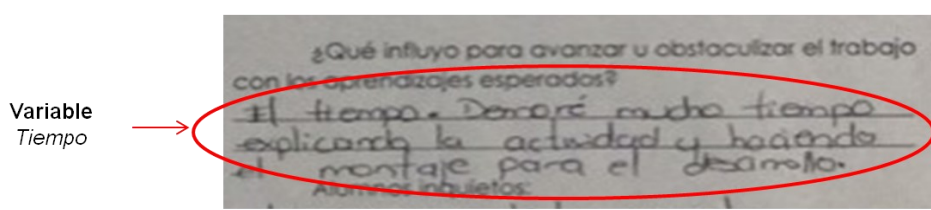 ¿Qué influyo para avanzar u obstaculizar el trabajo
con los aprendizajes esperados?
Variable
Tiempo
El tiempo. Demoré mucho tiempo
explicando la actividad y haciendo
el montaje para el desarrollo.
Alumnos inquietos: